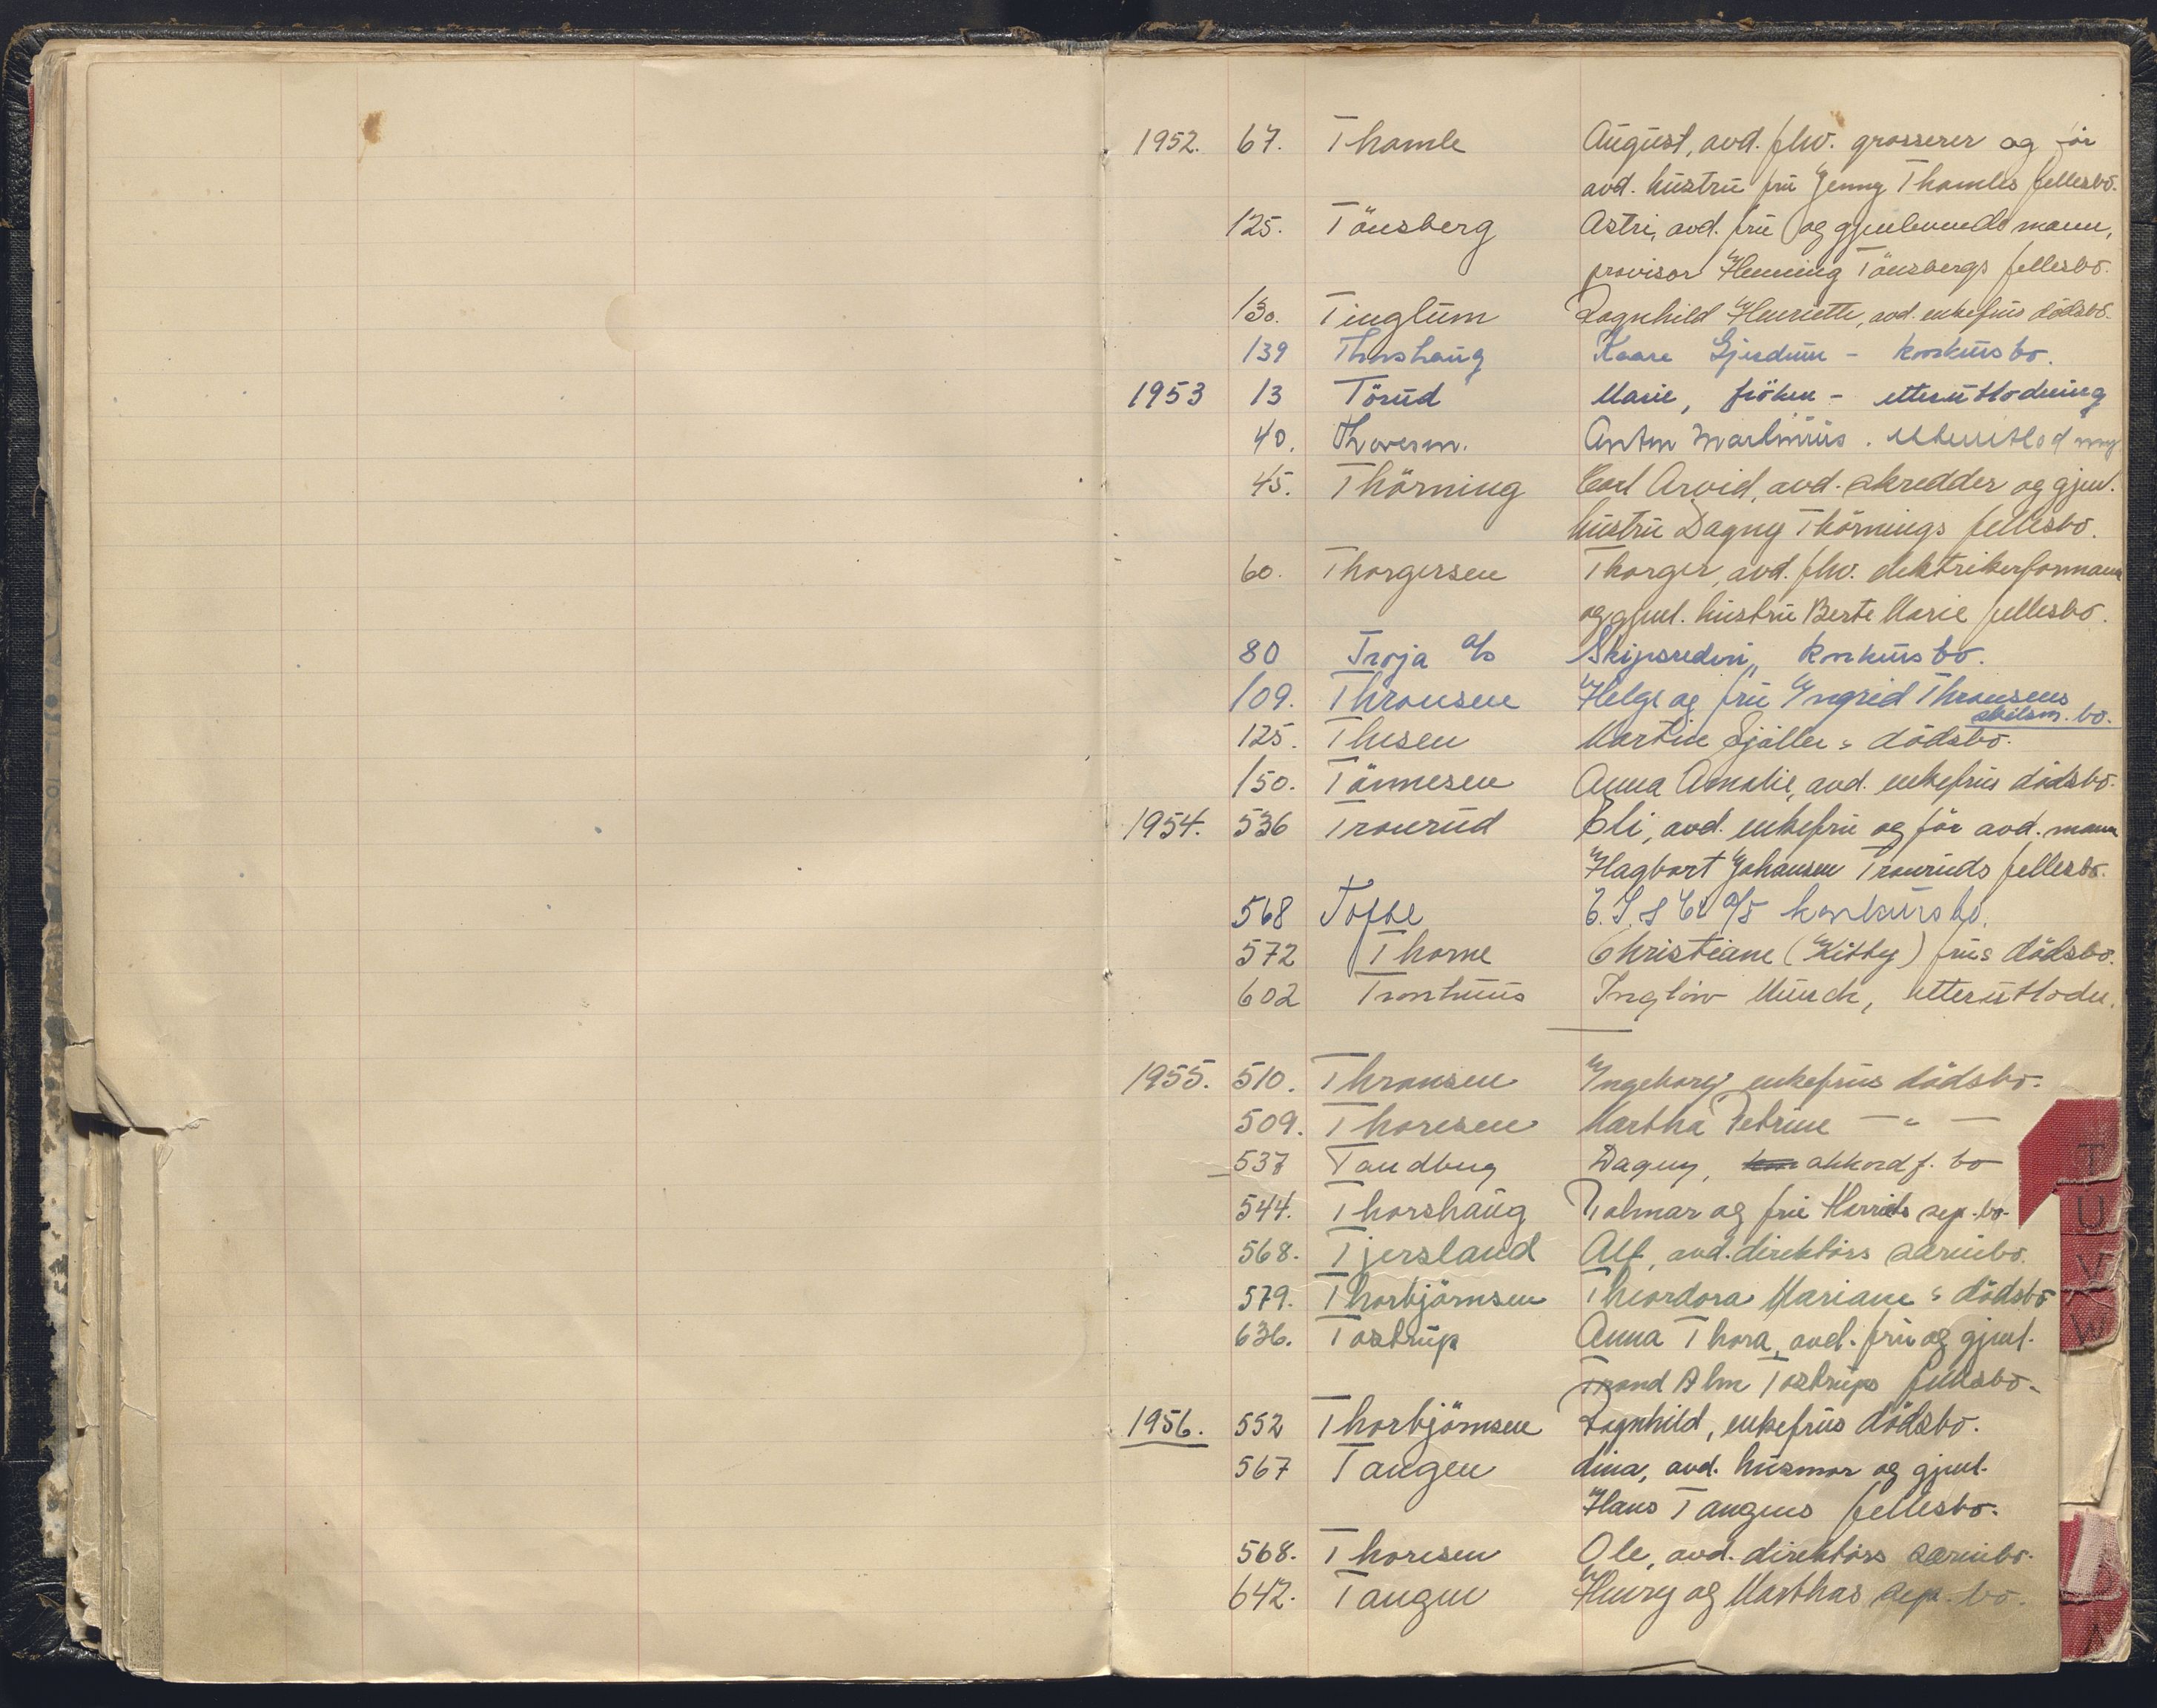 1952. 67. Thamle August, avd. fhv. grosserer og før
avd. hustru fru Jenny Thamles fellesbo.
125. Tönsberg Astri, avd. fru og gjenlevende mann,
provisor Henning Tönsbergs fellesbo.
130. Tinglum Ragnhild Henriette, avd. enkefrus dödsbo.
139 Thorshaug Kaare Gjerdrum - konkursbo.
1953 13 Törud Marie, fröken - etterutlodning
40. Thoresen. Anton Martinius. etterutlodning
45. Thörning Carl Arvid, avd. skredder og gjenl.
hustru Dagny Thörnings fellesbo.
60. Thorgersen Thorger, avd. fhv. elektrikerformann
og gjenl. hustru Berte Marie fellesbo.
80 Troja a/s Skipsrederi, konkursbo.
109. Thronsen Helge og fru Ingrid Thronsens
skilsm. bo.
125. Thesen Martine s dödsbo.
150. Tönnesen Anna Amalie, avd. enkefrus dödsbo.
1954. 536 Tronrud Eli, avd. enkefru og før avd. mann
Hagbart Johansen Tronruds fellesbo.
568 Tofte & Co a/s konkursbo.
572 Thorne Christiane (Kitty) frus dödsbo.
602 Tronhuus Münch, etterutlodn.
1955. 510. Thronsen Ingeborg enkefrus dödsbo.
509. Thoresen Martha Petrine — " —
537 Tandberg Dagny, akkordf. bo
544. Thorshaug Tolmar og fru Harriets sep. bo.
568. Tjersland Alf, avd. direktørs særeiebo.
579. Thorbjörnsen Theordora Mariane s dödsbo
636. Tostrup Anna Thora, avd. fru og gjenl.
Trond Alm Tostrups fellesbo.
1956. 552 Thorbjörnsen Ragnhild, enkefrus dödsbo.
567 Tangen Lina, avd. husmor og gjenl.
Hans Tangens fellesbo.
568. Thoresen Ole, avd. direktørs særeiebo.
642. Tangen Henry og Marthas sep. bo.
T
U
V
W